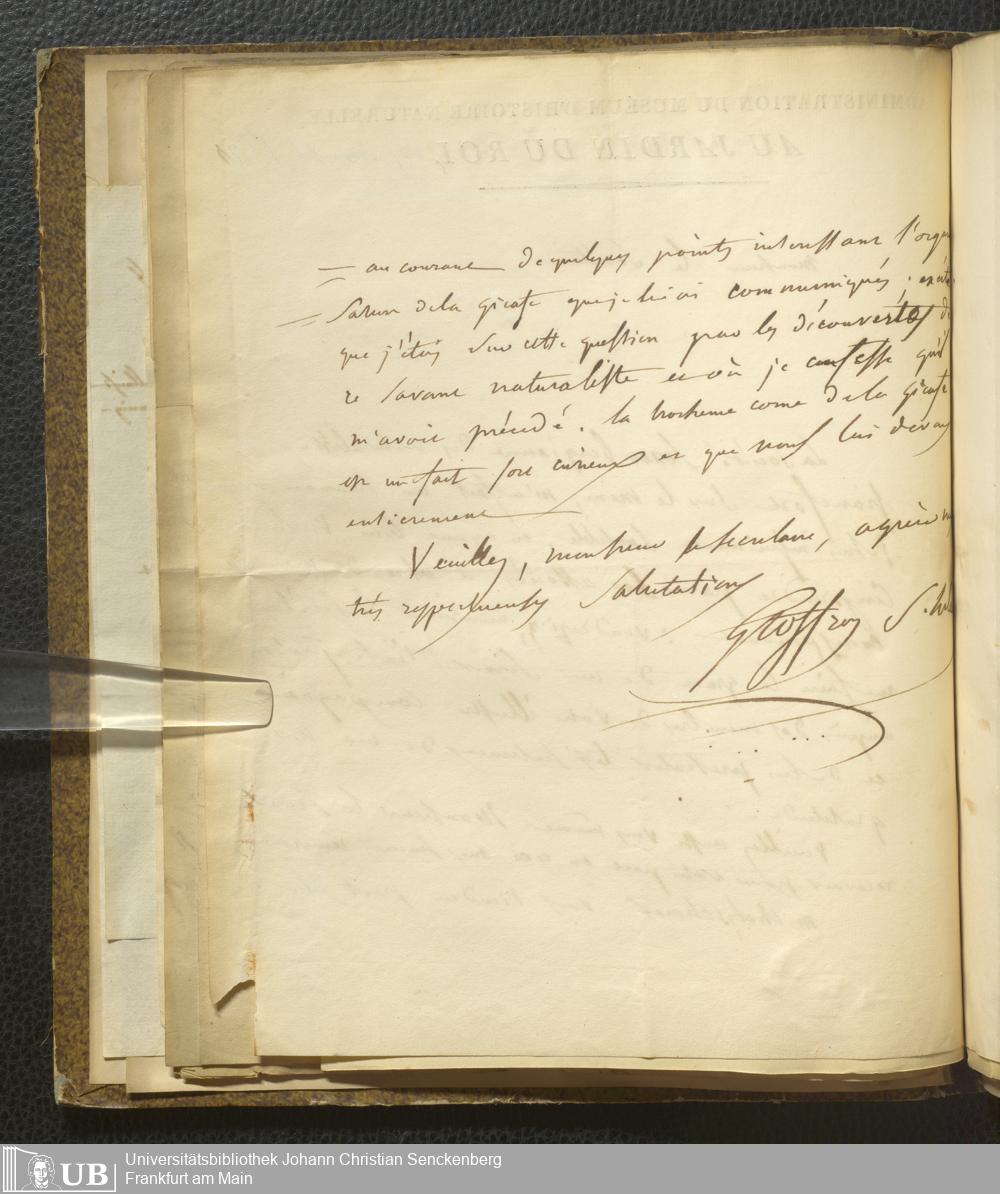 ADMINISTRATION DU MUSÉUM D'HISTOIRE NATURELLE
AU JARDIN DU ROI,
= au courant de quelques points interessant l'orga
= sation de la girafe que je lui ai communiqués; excité
que j'étois sur cette question par les découvertes de
ce savant naturaliste et où je confesse qu'il
m'avoit précédé. la troisieme corne de la girafe
est un fait fort curieux et que nous lui devons
entierement
Veuillez, monsieur le secretaire, agréer m
très respectueuses salutations
Geoffroy S. hil
UB
Universitätsbibliothek Johann Christian Senckenberg
Frankfurt am Main